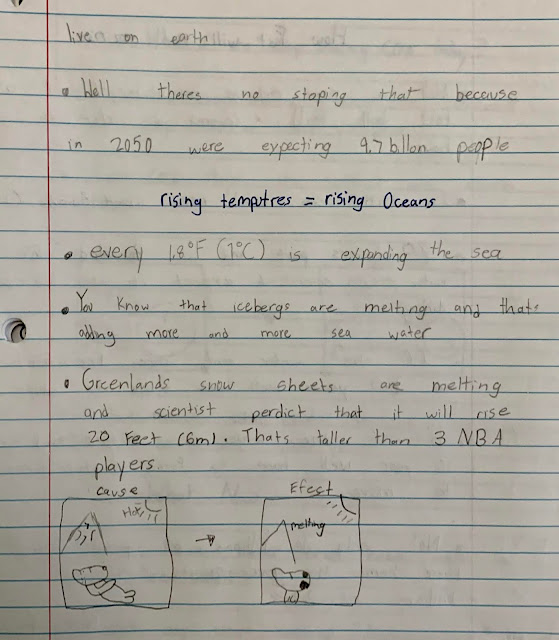 live on earth
• Well theres no stoping that because
in 2050 were expecting 9.7 billon people
rising temptres = rising Oceans
• every 1.8°F (1°C) is expanding the sea
• You know that icebergs are melting and thats
adding more and more sea water
• Greenlands snow sheets are melting
and scientist perdict that it will rise
20 Feet (6m). Thats taller than 3 NBA
players
cause
Efect
Hot
melting